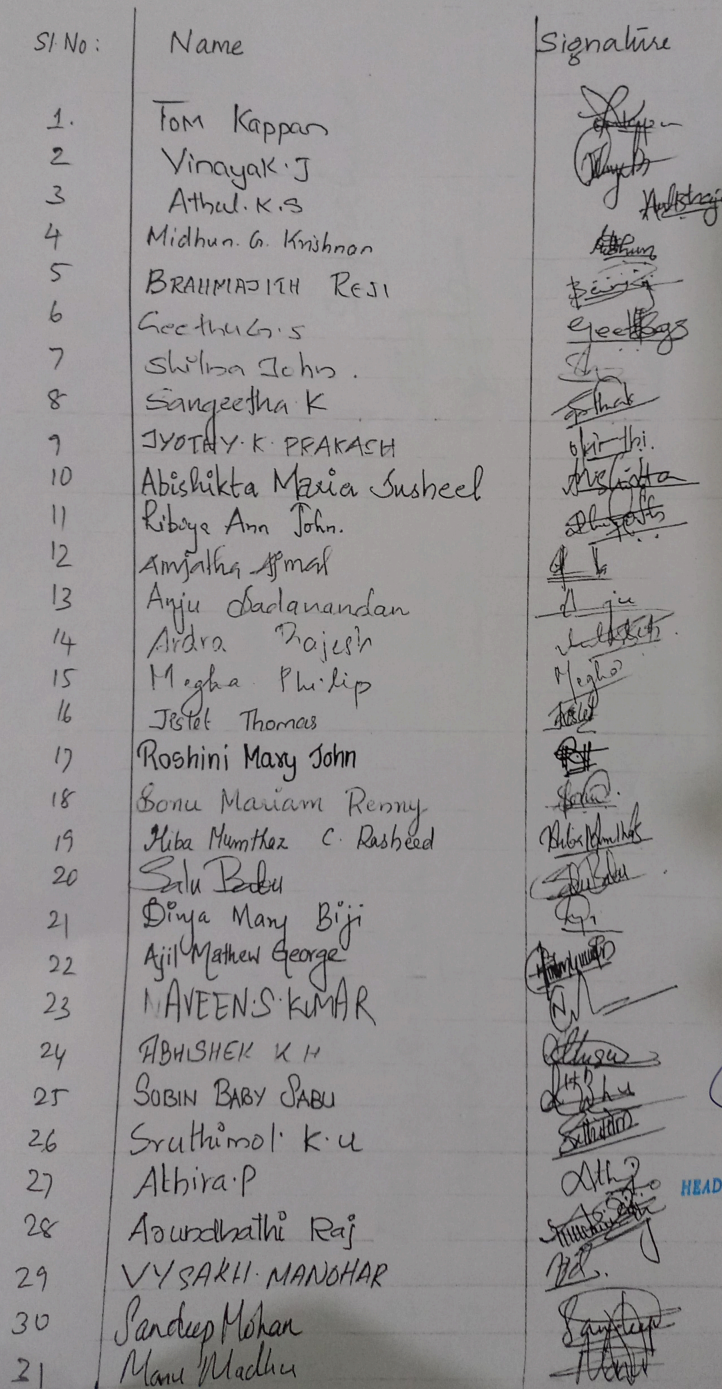 Sl. No: Name Signature
1. Tom Kappan
2 Vinayak. J
3 Athul. K. S
4 Midhun. G. Krishnan
5 BRAHMAJITH REJI
6 Geethu G. S GeethuGS
7 Shilpa John.
8 Sangeetha K
9 JYOTHY. K. PRAKASH
10 Abishikta Maria Susheel
11 Ann John.
12 Ajmal
13 Anju Sadanandan Anju
14 Ardra Rajesh
15 Megha Philip Megha
16 Jestet Thomas
17 Roshini Mary John
18 Sonu Mariam Renny Sonu.
19 Hiba Mumthaz C. Rasheed
20 Salu Babu Salu Babu
21 Divya Mary Biji
22 Ajil Mathew George
23 NAVEEN. S. KUMAR
24 ABHISHEK K H
25 SOBIN BABY SABU
26 Sruthimol K. U
27 Athira. P
HEAD
28 Aoundhathi Raj
29 VYSAKH. MANOHAR
30 Sandeep Mohan Sandeep
31 Manu Madhu Manu